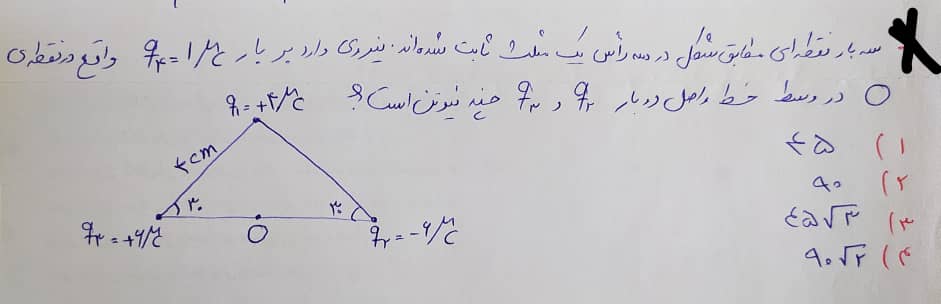 سه بار نقطه‌ای مطابق شکل در سه رأس یک مثلث ثابت شده‌اند. نیروی وارد بر بار q₄=1μC واقع در نقطه‌ی
O در وسط خط واصل دو بار q₂ و q₃ چند نیوتن است؟
q₁=+۴μC
۴cm
۳۰
۳۰
q₃=+۶μC
O
q₂=-۶μC
۱) ۴۵
۲) ۹۰
۳) ۴۵√۳
۴) ۹۰√۲